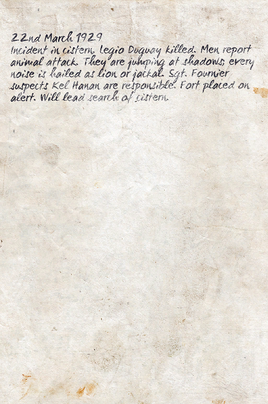 22nd March 1929
Incident in cistern, Legio Duquay killed. Men report
animal attack. They are jumping at shadows, every
noise is hailed as lion or jackal. Sgt. Fournier
suspects Kel Hanan are responsible. Fort placed on
alert. Will lead search of cistern.